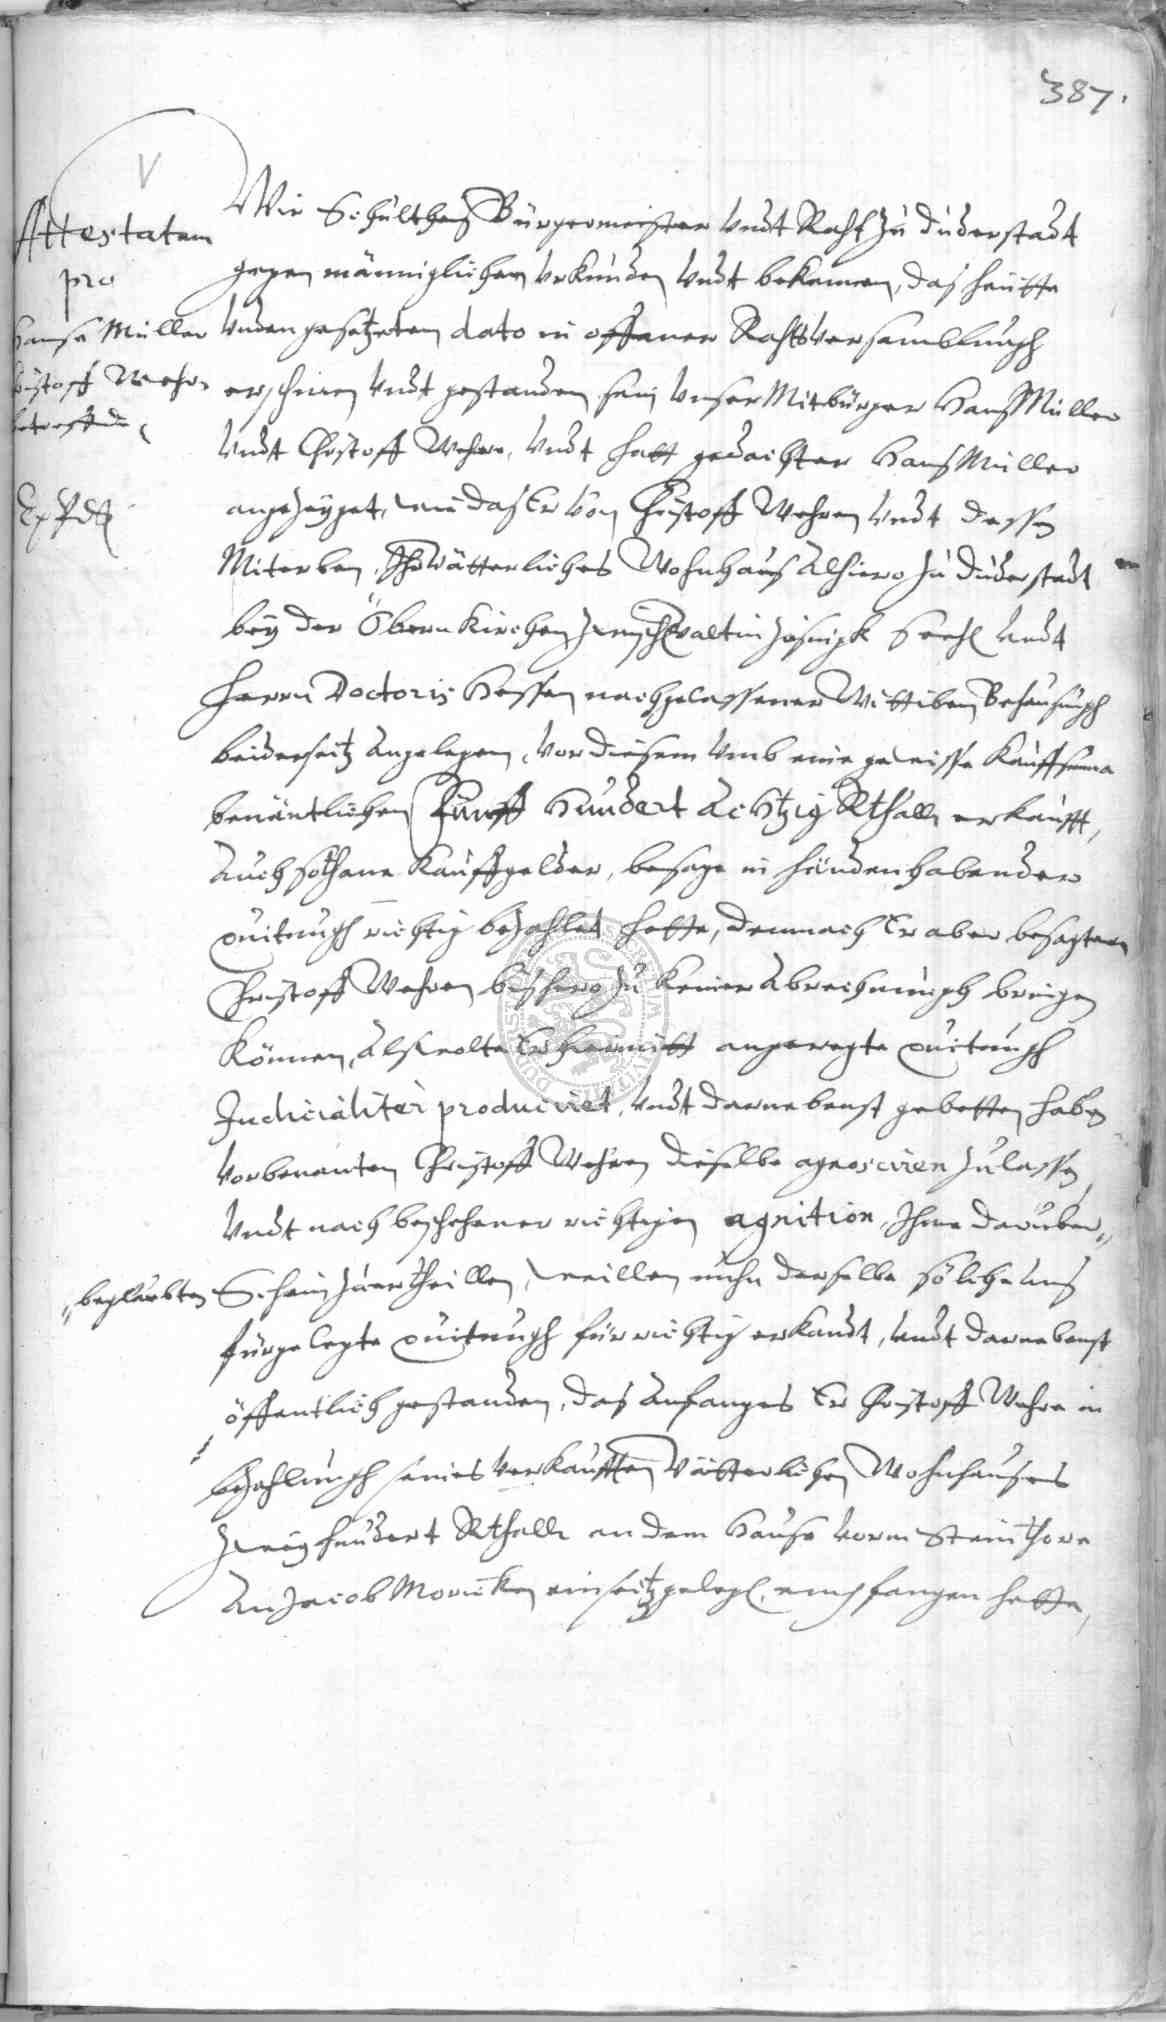 387.
Attestatum
pro
Hanß Müller
Christoff Wehr
betreffende
Wir Schultheß Bürgermeister Undt Raht zu Duderstadt
gegen männiglichen Urkunden Undt bekennen, das heutte
Unden gesetzetem dato in offener Rahtsversamblungh
erschinen Undt gestanden sein Unser Mitbürger Hanß Müller
Undt Christoff Wehre, Undt hatt gedachter Hanß Müller
angezeyget, wie das Er Von Christoff Wehren Undt dessen
Miterben, Ihr Vätterliches Wohnhauß Alhiero zu Duderstadt
bey der Öbern Kirchen zwischen Valtin Seehl Undt
Herrn Doctoris Hessen nachgelassener Wittiben Behausungh
beiderseitz Angelegen, Vor diesem Umb eine gewisse Kauffsumma
benäntlichen Fünff Hundert Achtzig Rthall. erkaufft,
Auch sothane Kauffgelder, besage in händen habender
quitungh richtig bezahlet hette, demnach Er aber besagten
Christoff Wehren bishero zu Keiner Abrechnungh bringen
Können, Als wolte Er hiemitt angeregte quitungh
Judicialiter produciret, Undt darnebenst gebetten haben
Vorbenanten Christoff Wehren dieselbe agnosciren zulassen
Undt nach beschehener richtigen agnition, Ihme darüber
beglaubten Schein zuertheillen, weillen nuhn derselbe solche uns
fürgelegte quitungh für richtig erkandt, Undt darnebenst
öffentlich gestanden, das Anfanges Er Christoff Wehre in
bezahlungh seines Verkaufften Vätterlichen Wohnhauses
Zwey hundert Rthall. an dem Hause Vorm Steinthore
An Jacob Moricken einseitz gelegen, empfangen hette,